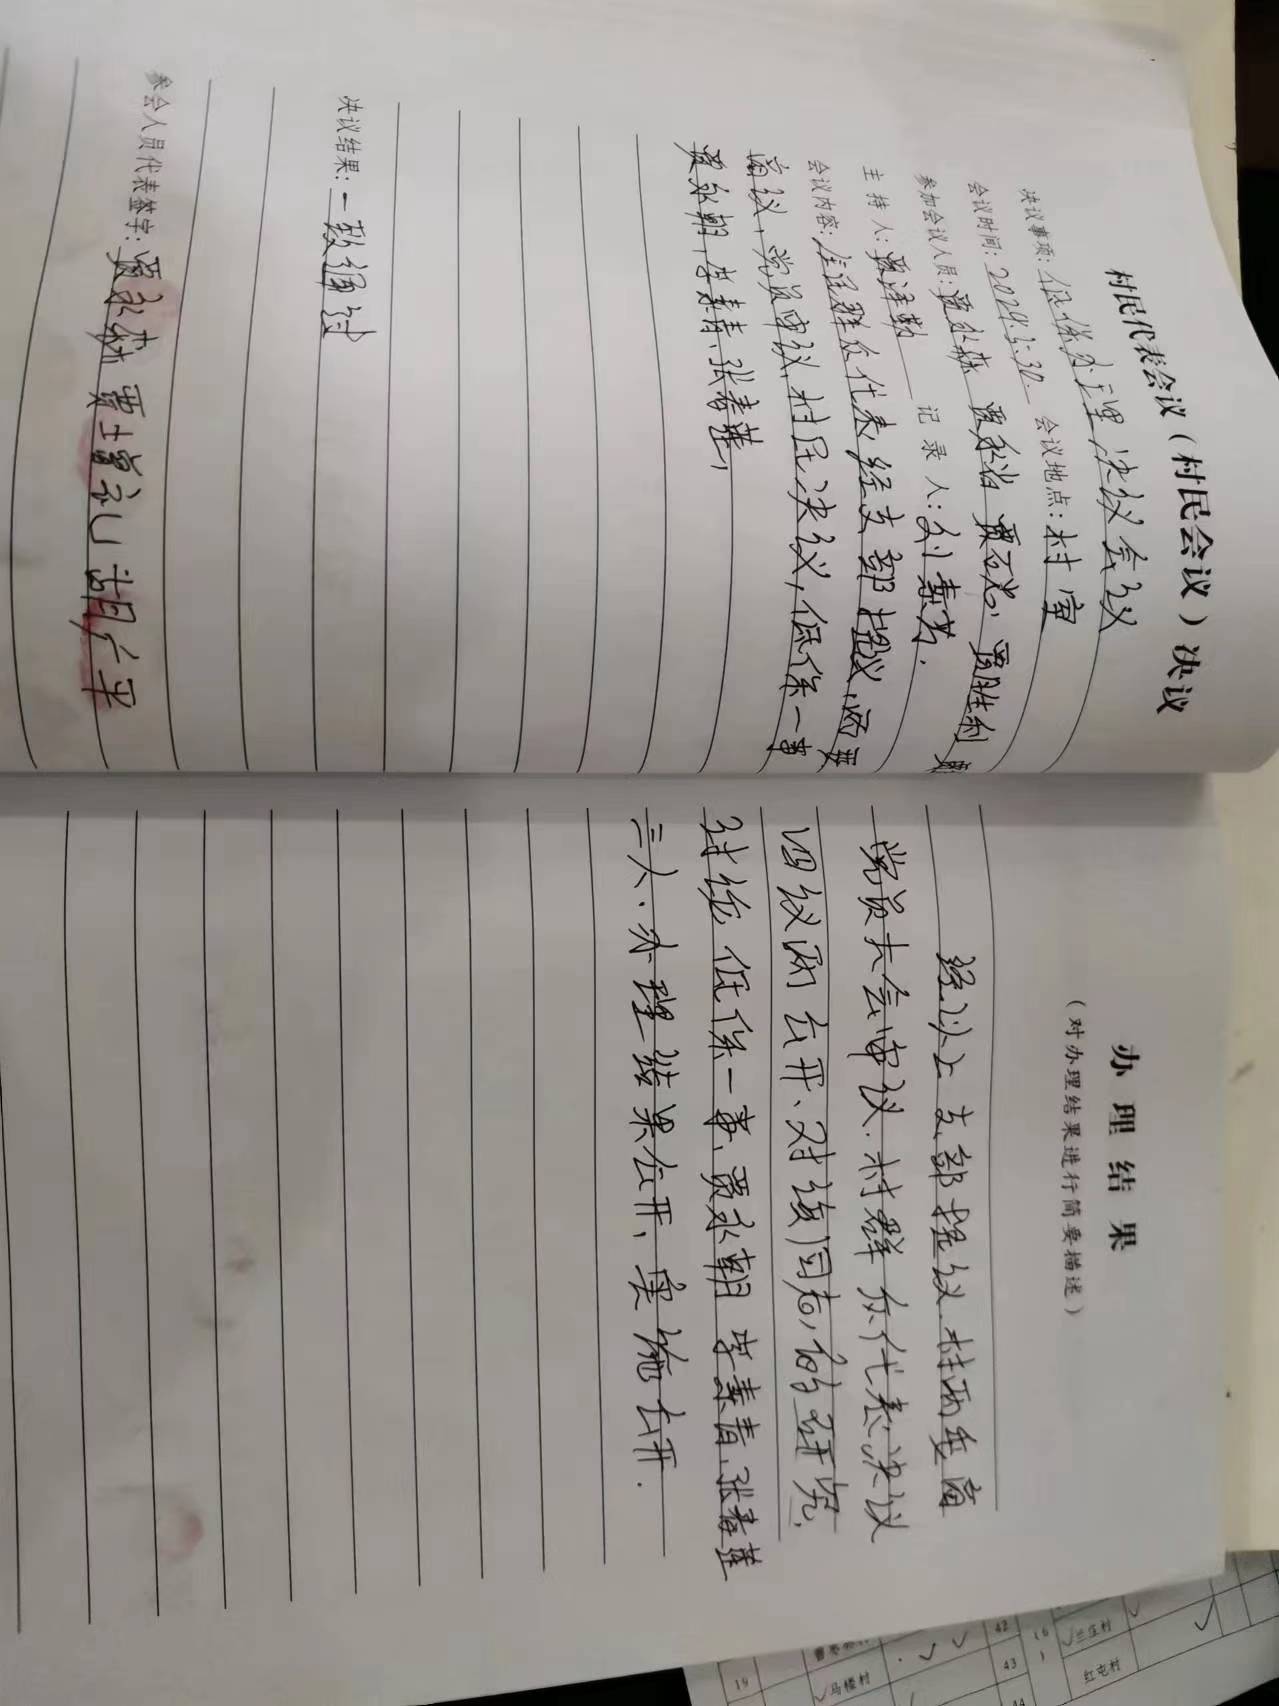 村民代表会议（村民会议）决议
决议事项：低保办理决议会议
会议时间：2024.5.30 会议地点：村室
参加会议人员：贾永森 贾胜利
主持人：贾 记录人：刘
会议内容：全体群众代表，经支部提议，两委
商议，党员审议，村民决议，低保一事
贾永朝，李素青、张春莲，
决议结果：一致通过
参会人员代表签字：贾永森 贾士增礼 胡广平
办理结果
（对办理结果进行简要描述）
经以上支部提议.村两委商
党员大会审议.村群众代表决议
四议两公开、对该同志，的研究，
讨论低保一事，贾永朝 李素青、张春莲
三人.办理结果公开，实施公开.
19
马楼村
42
43
44
兰伍村
红屯村